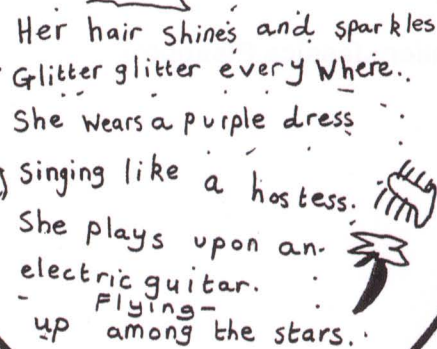 Her hair shines and sparkles
Glitter glitter every where..
She wears a purple dress
Singing like a hostess.
She plays upon an
electric guitar.
Flying
up among the stars..